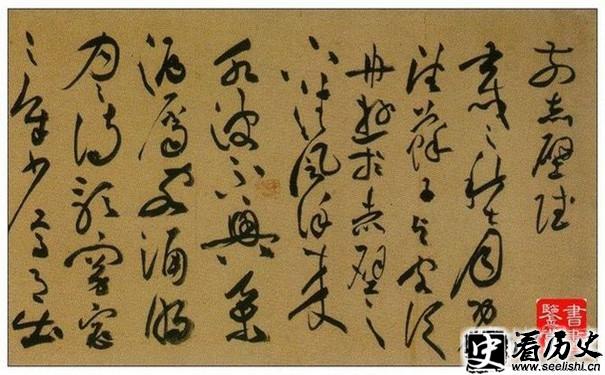 前赤壁賦
壬戌之秋七月既
望蘇子與客泛
舟遊於赤壁之
下清風徐來
水波不興舉
酒屬客誦明
月之詩歌窈窕
之章少焉月出
史 看历史
www.seelishi.cn